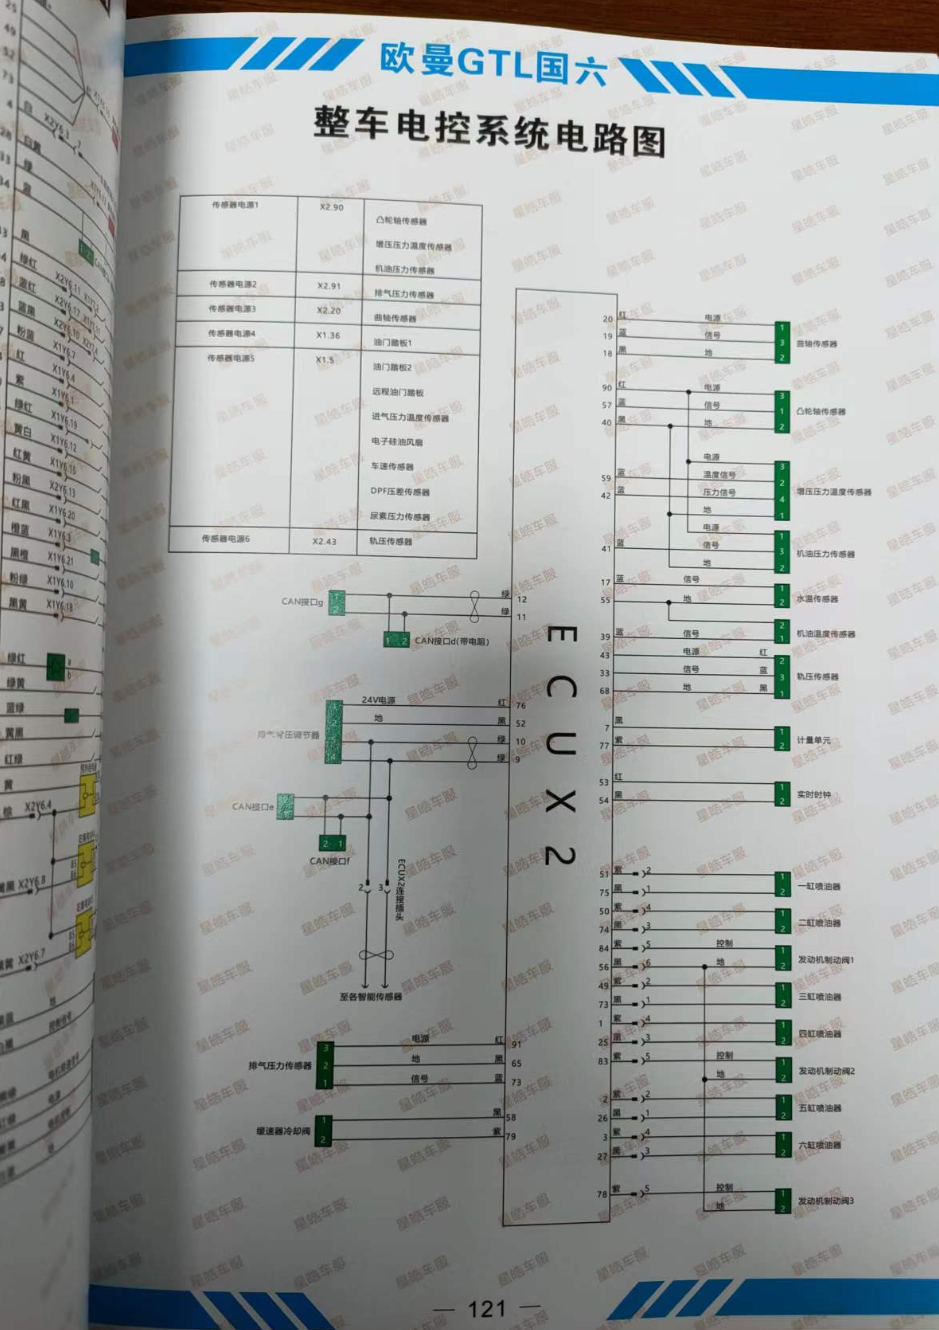 欧曼GTL国六
整车电控系统电路图
传感器电源1 X2.90 凸轮轴传感器
增压压力温度传感器
机油压力传感器
传感器电源2 X2.91 排气压力传感器
传感器电源3 X2.20 曲轴传感器
传感器电源4 X1.36 油门踏板1
传感器电源5 X1.5 油门踏板2
远程油门踏板
进气压力温度传感器
电子硅油风扇
车速传感器
DPF压差传感器
尿素压力传感器
传感器电源6 X2.43 轨压传感器
ECUX2
CAN接口g 1 2
绿 12
绿 11
1 2 CAN接口d(带电阻)
24V电源 红 76
地 黑 52
绿 10
绿 9
CAN接口e
2 1
CAN接口f
2 3 ECUX2连接插头
至各智能传感器
排气压力传感器
3 电源 红 91
2 地 黑 65
1 信号 蓝 73
缓速器冷却阀
1 黑 58
2 紫 79
20 红 电源 1
19 蓝 信号 3 曲轴传感器
18 黑 地 2
90 红 电源 3
57 蓝 信号 1 凸轮轴传感器
40 黑 地 2
电源 3
59 蓝 温度信号 2
42 蓝 压力信号 4 增压压力温度传感器
地 1
电源 1
41 蓝 信号 3 机油压力传感器
地 2
17 蓝 信号 1
55 地 2 水温传感器
2
39 蓝 信号 1 机油温度传感器
43 电源 红 2
33 信号 蓝 3 轨压传感器
68 地 黑 1
7 黑 1
77 紫 2 计量单元
53 红 1
54 黑 2 实时时钟
51 紫 2 1
75 黑 1 2 一缸喷油器
50 紫 4 1
74 黑 3 2 二缸喷油器
84 紫 5 控制 1
56 黑 6 地 2 发动机制动阀1
49 紫 2 1
73 黑 1 2 三缸喷油器
1 紫 4 1
25 黑 3 2 四缸喷油器
83 紫 5 控制 1
地 2 发动机制动阀2
2 紫 2 1
26 黑 1 2 五缸喷油器
3 紫 4 1
27 黑 3 2 六缸喷油器
78 紫 5 控制 1
地 2 发动机制动阀3
— 121 —
白 X2Y6.1
白黄
绿
蓝
黑
绿红 X2Y6.11
蓝红 X2Y6.17
蓝黑 X2Y6.10
粉蓝 X1Y6.7
红 X1Y6.4
紫 X1Y6.1
绿红 X1Y6.19
黄白 X1Y6.12
红黄 X1Y6.15
粉黑 X2Y6.13
红黑 X1Y6.20
橙蓝 X1Y6.3
黑橙 X1Y6.21
粉绿 X1Y6.10
黑黄 X1Y6.18
绿红
绿黄
蓝绿
黄黑
红绿
黄
棕 X2Y6.4
黑 X2Y6.8
黄 X2Y6.7
星皓车服